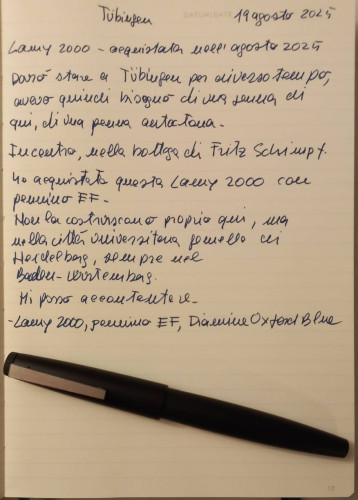 Tübingen 19 agosto 2025
DATUM/DATE
Lamy 2000 - acquistata nell'agosto 2025
Dovrò stare a Tübingen per diverso tempo,
avevo quindi bisogno di una penna di
qui, di una penna autoctona.
Incontro, nella bottega di Fritz Schimpf.
Ho acquistato questa Lamy 2000 con
pennino EF.
Non la costruiscono proprio qui, ma
nella città universitaria gemella di
Heidelberg, sempre nel
Baden-Württemberg.
Mi posso accontentare.
-Lamy 2000, pennino EF, Diamine Oxford Blue